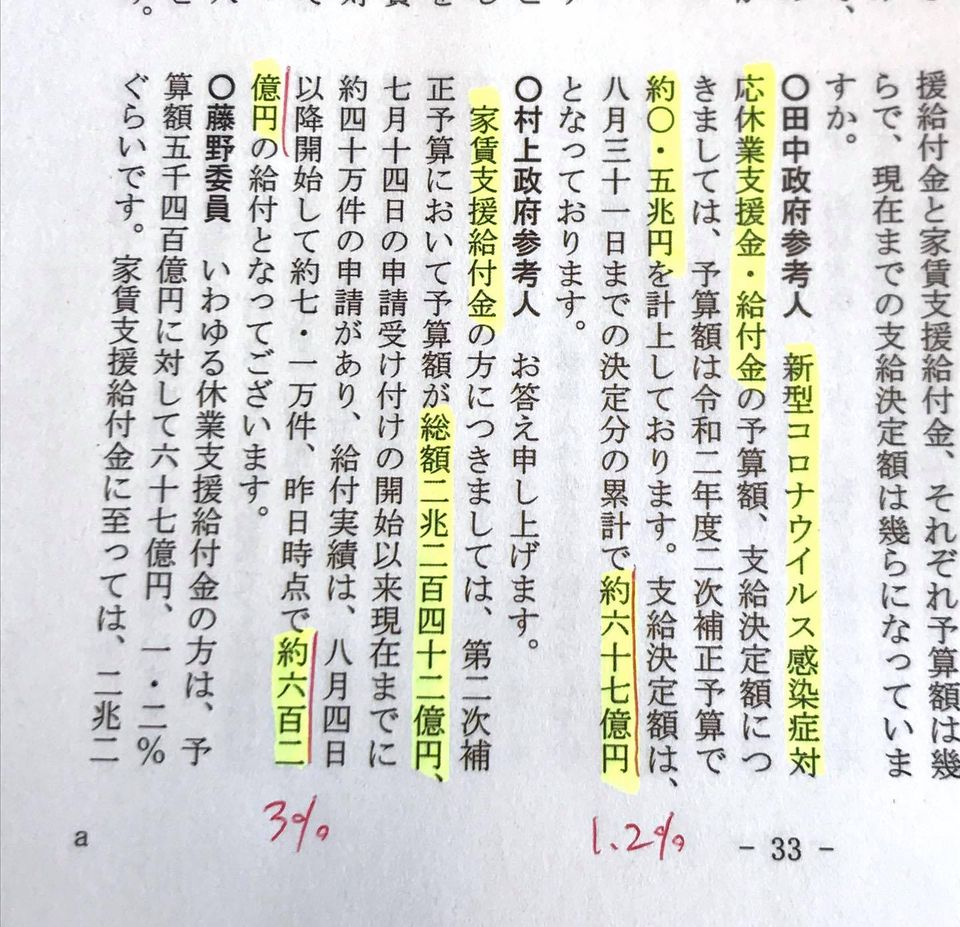 援給付金と家賃支援給付金、それぞれ予算額は幾
らで、現在までの支給決定額は幾らになっていま
すか。
〇田中政府参考人　新型コロナウイルス感染症対
応休業支援金・給付金の予算額、支給決定額につ
きましては、予算額は令和二年度二次補正予算で
約〇・五兆円を計上しております。支給決定額は、
八月三十一日までの決定分の累計で約六十七億円
となっております。
〇村上政府参考人　お答え申し上げます。
家賃支援給付金の方につきましては、第二次補
正予算において予算額が総額二兆二百四十二億円、
七月十四日の申請受け付けの開始以来現在までに
約四十万件の申請があり、給付実績は、八月四日
以降開始して約七・一万件、昨日時点で約六百二
億円の給付となってございます。
〇藤野委員　いわゆる休業支援給付金の方は、予
算額五千四百億円に対して六十七億円、一・二％
ぐらいです。家賃支援給付金に至っては、二兆二
1.2%
3%
- 33 -
a